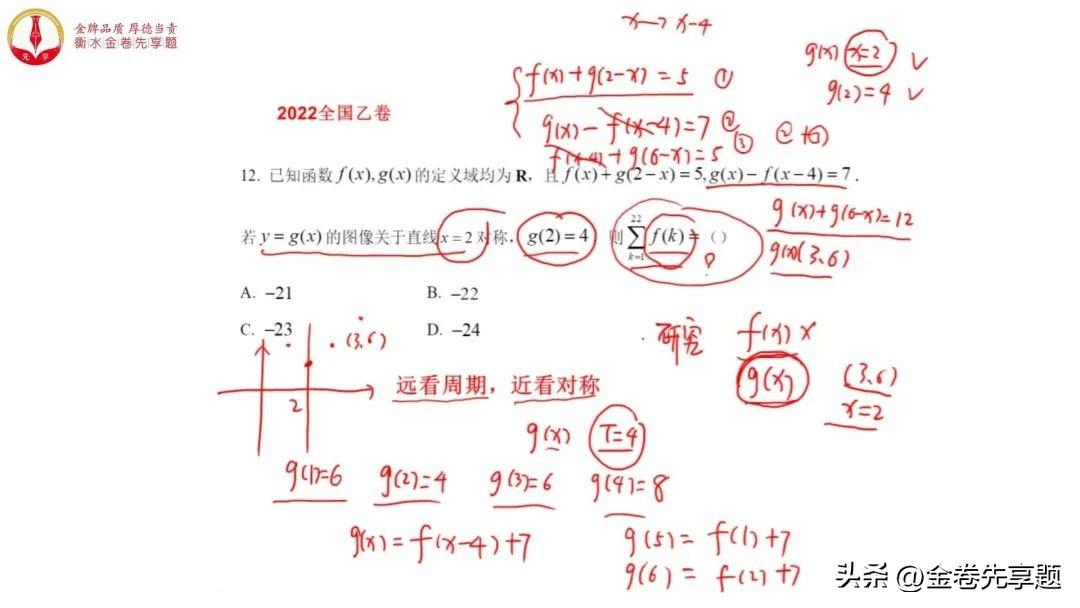 金牌品质 厚德当责
衡水金卷先享题
先享
x→x-4
g(x) x=2 ✓
g(2)=4 ✓
f(x)+g(2-x)=5 ①
2022全国乙卷
g(x)-f(x-4)=7 ②
f(x-4)+g(6-x)=5 ③
②+③
12. 已知函数 f(x),g(x) 的定义域均为 R，且 f(x)+g(2-x)=5,g(x)-f(x-4)=7．
g(x)+g(6-x)=12
若 y=g(x) 的图像关于直线 x=2 对称，g(2)=4，则 ∑_{k=1}^{22} f(k)=（）
g(x)(3,6)
A. -21
B. -22
C. -23
D. -24
(3,6)
2
研究 f(x) ×
g(x)
(3,6)
x=2
远看周期，近看对称
g(x) T=4
g(1)=6 g(2)=4 g(3)=6 g(4)=8
g(x)=f(x-4)+7
g(5)=f(1)+7
g(6)=f(2)+7
头条 @金卷先享题